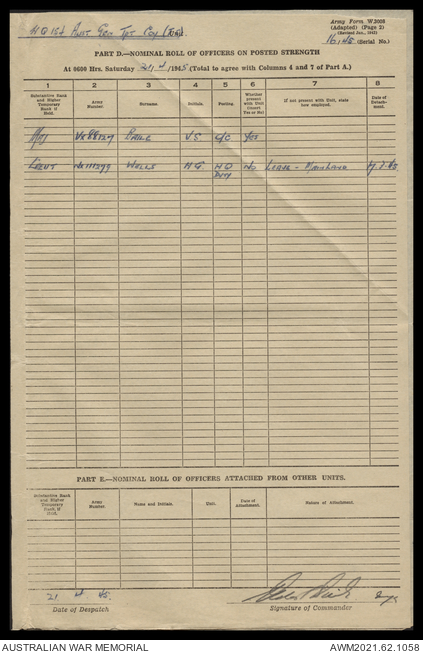 HQ 1st Aust Gen Tpt Coy (Unit)
Army Form W.3008
(Adapted) (Page 2)
(Revised Jan., 1942)
16/45 (Serial No.)
PART D.—NOMINAL ROLL OF OFFICERS ON POSTED STRENGTH
At 0600 Hrs. Saturday 21/4/1945 (Total to agree with Columns 4 and 7 of Part A.)
1 2 3 4 5 6 7 8
Substantive Rank and Higher Temporary Rank if Held.
Army Number.
Surname.
Initials.
Posting.
Whether present with Unit (Insert Yes or No)
If not present with Unit, state how employed.
Date of Detachment.
Maj J.S. O/C Yes
Lieut Wells H.G. No Leave - Mainland
Duty
PART E.—NOMINAL ROLL OF OFFICERS ATTACHED FROM OTHER UNITS.
Substantive Rank and Higher Temporary Rank, if Held.
Army Number
Name and Initials.
Unit.
Date of Attachment.
Nature of Attachment.
21 4 45
Date of Despatch
Signature of Commander
AUSTRALIAN WAR MEMORIAL
AWM2021.62.1058